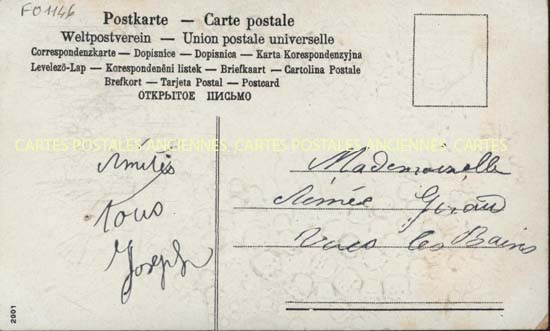 FO1146
Postkarte — Carte postale
Weltpostverein — Union postale universelle
Correspondenzkarte — Dopisnice — Dopisnica — Karta Korespondenzyjna
Levelező-Lap — Korespondenêni listek — Briefkaart — Cartolina Postale
Brefkort — Tarjeta Postal — Postcard
ОТКРЫТОЕ ПИСЬМО
CARTES POSTALES ANCIENNES CARTES POSTALES ANCIENNES CARTES
Amitiés
tous
Joseph
Mademoiselle
Aimée Giraud
les Bains
2001